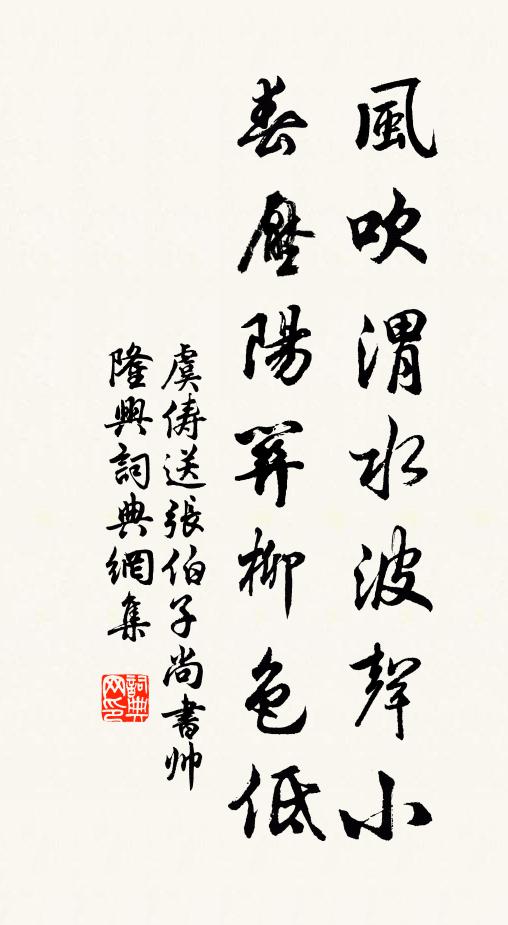 風吹渭水波聲小
春壓陽關柳色低
虞儔送張伯子尚書帅
隆興詞典網集
詞典
网印